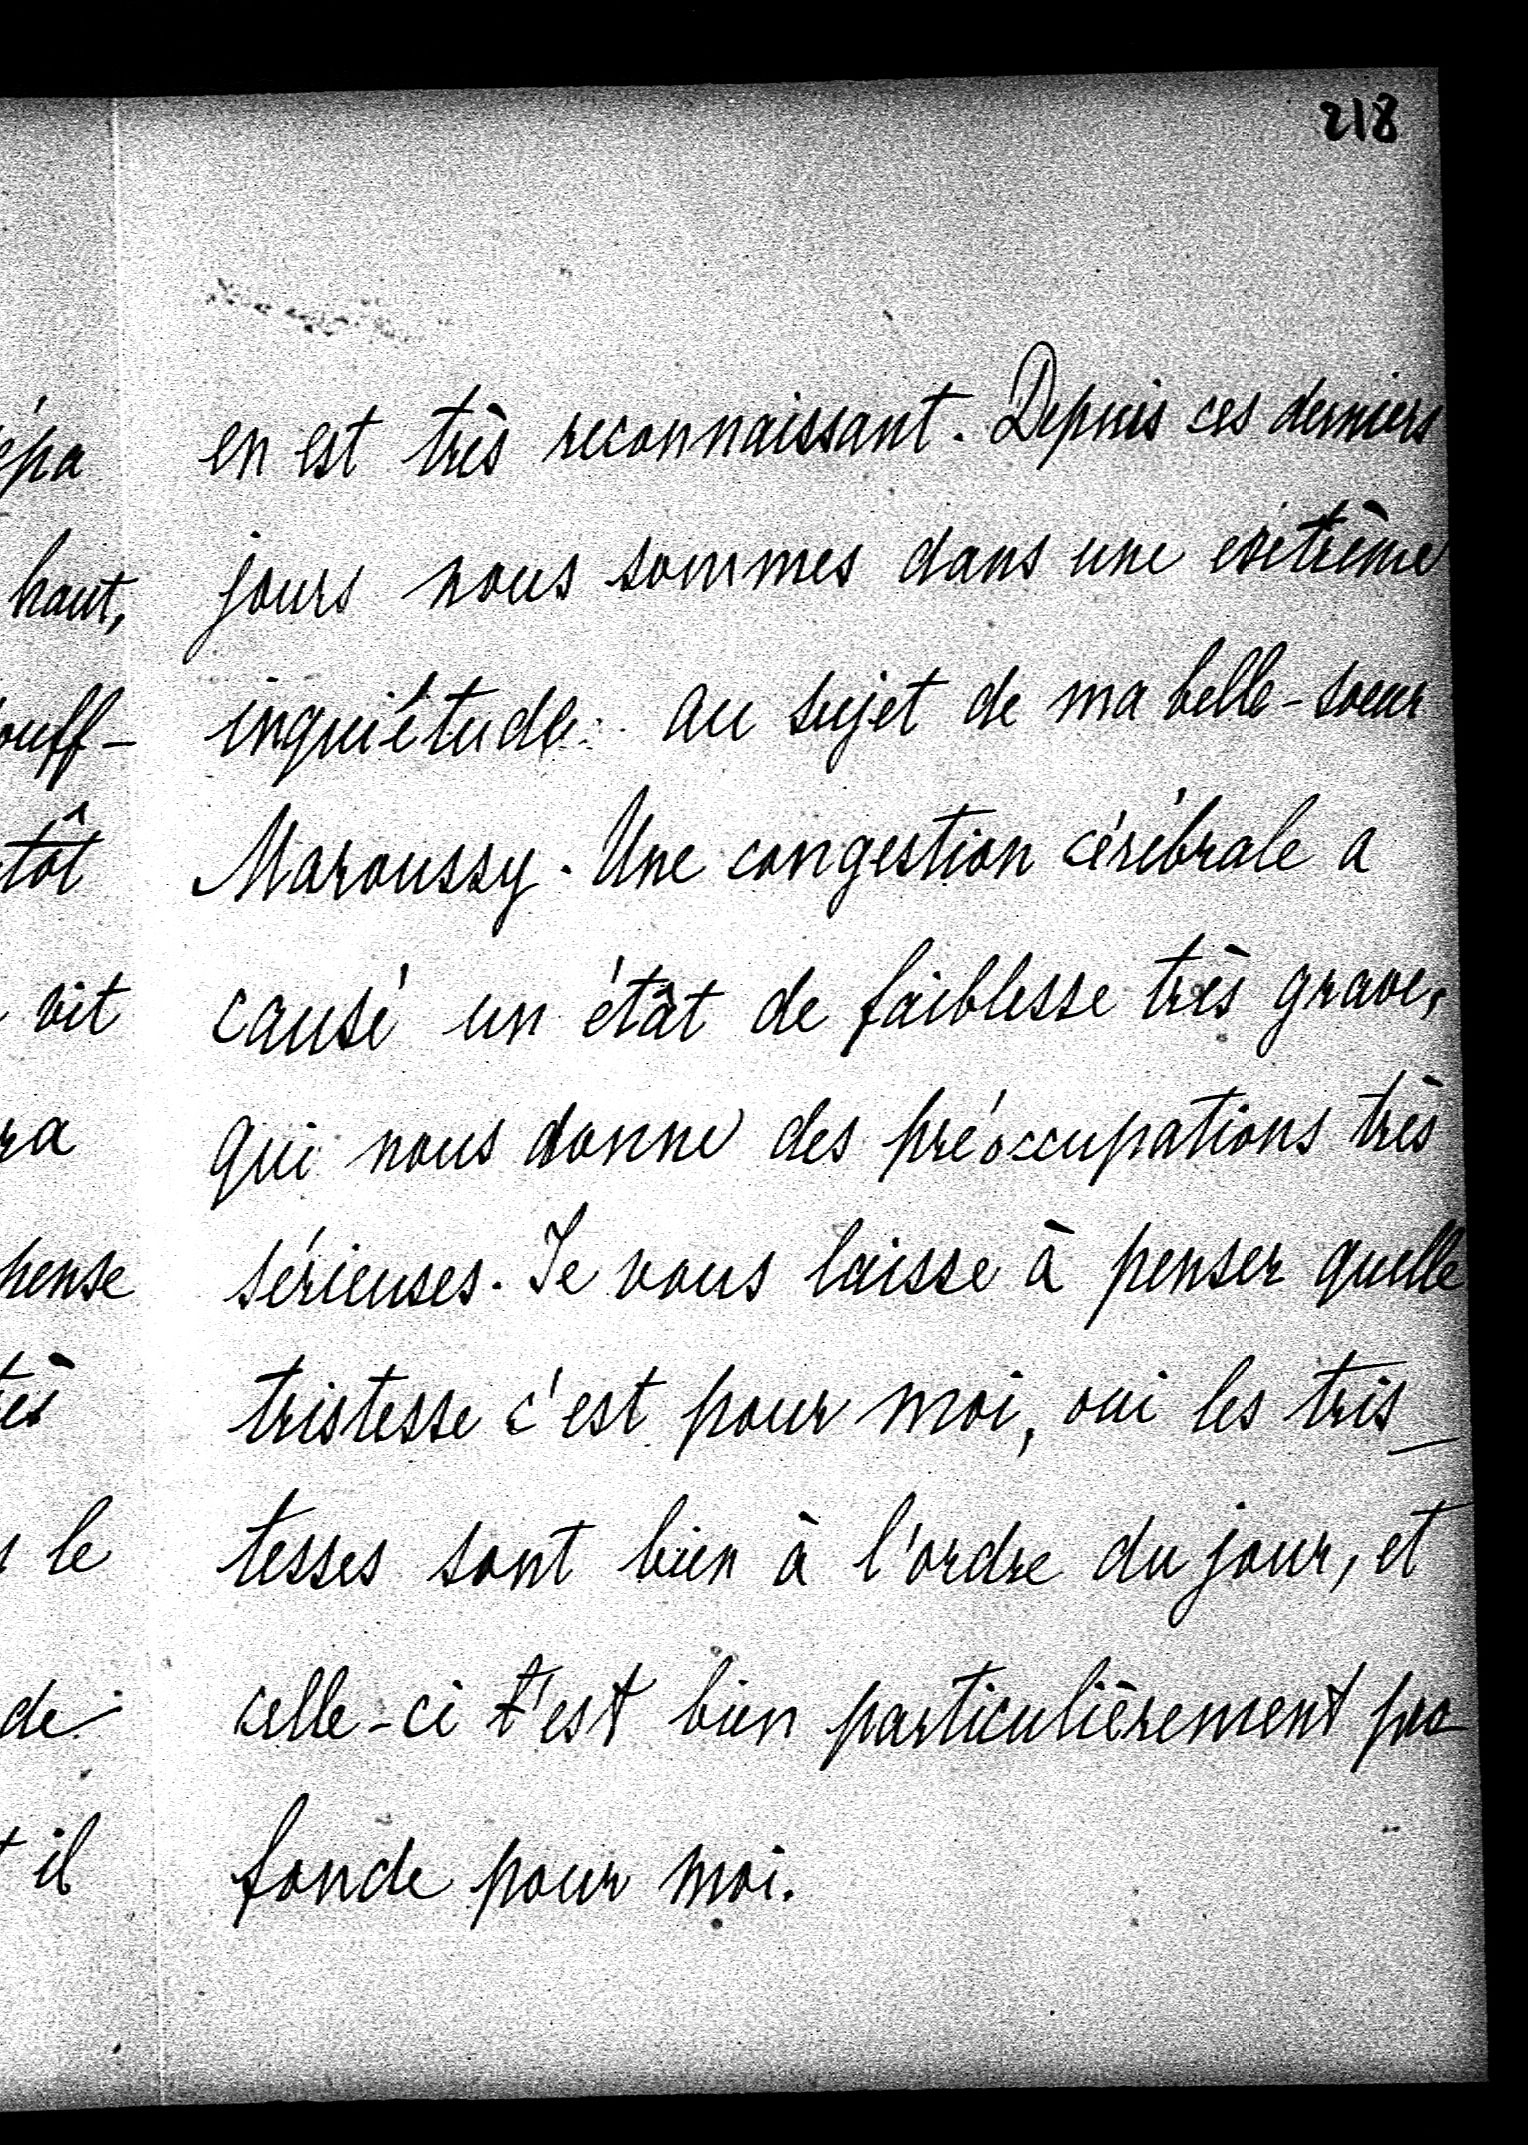 218
en est très reconnaissant. Depuis ces derniers
jours nous sommes dans une extrême
inquiétude au sujet de ma belle-soeur
Maroussy. Une congestion cérébrale a
causé un étât de faiblesse très grave,
qui nous donne des préoccupations très
sérieuses. Je vous laisse à penser quelle
tristesse c'est pour moi, oui les tris_
tesses sont bien à l'ordre du jour, et
celle-ci t'est bien particulièrement pro
fonde pour moi.
haut,
vit
le
de
il